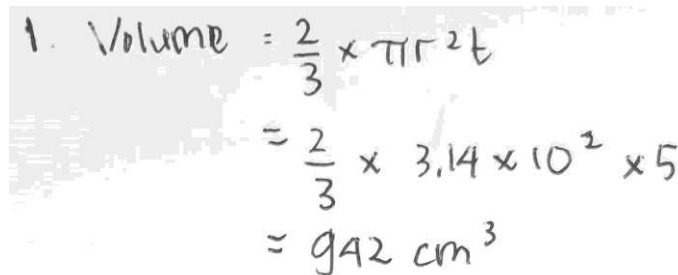 1. Volume = 2/3 × πr²t
= 2/3 × 3,14 × 10² × 5
= 942 cm³